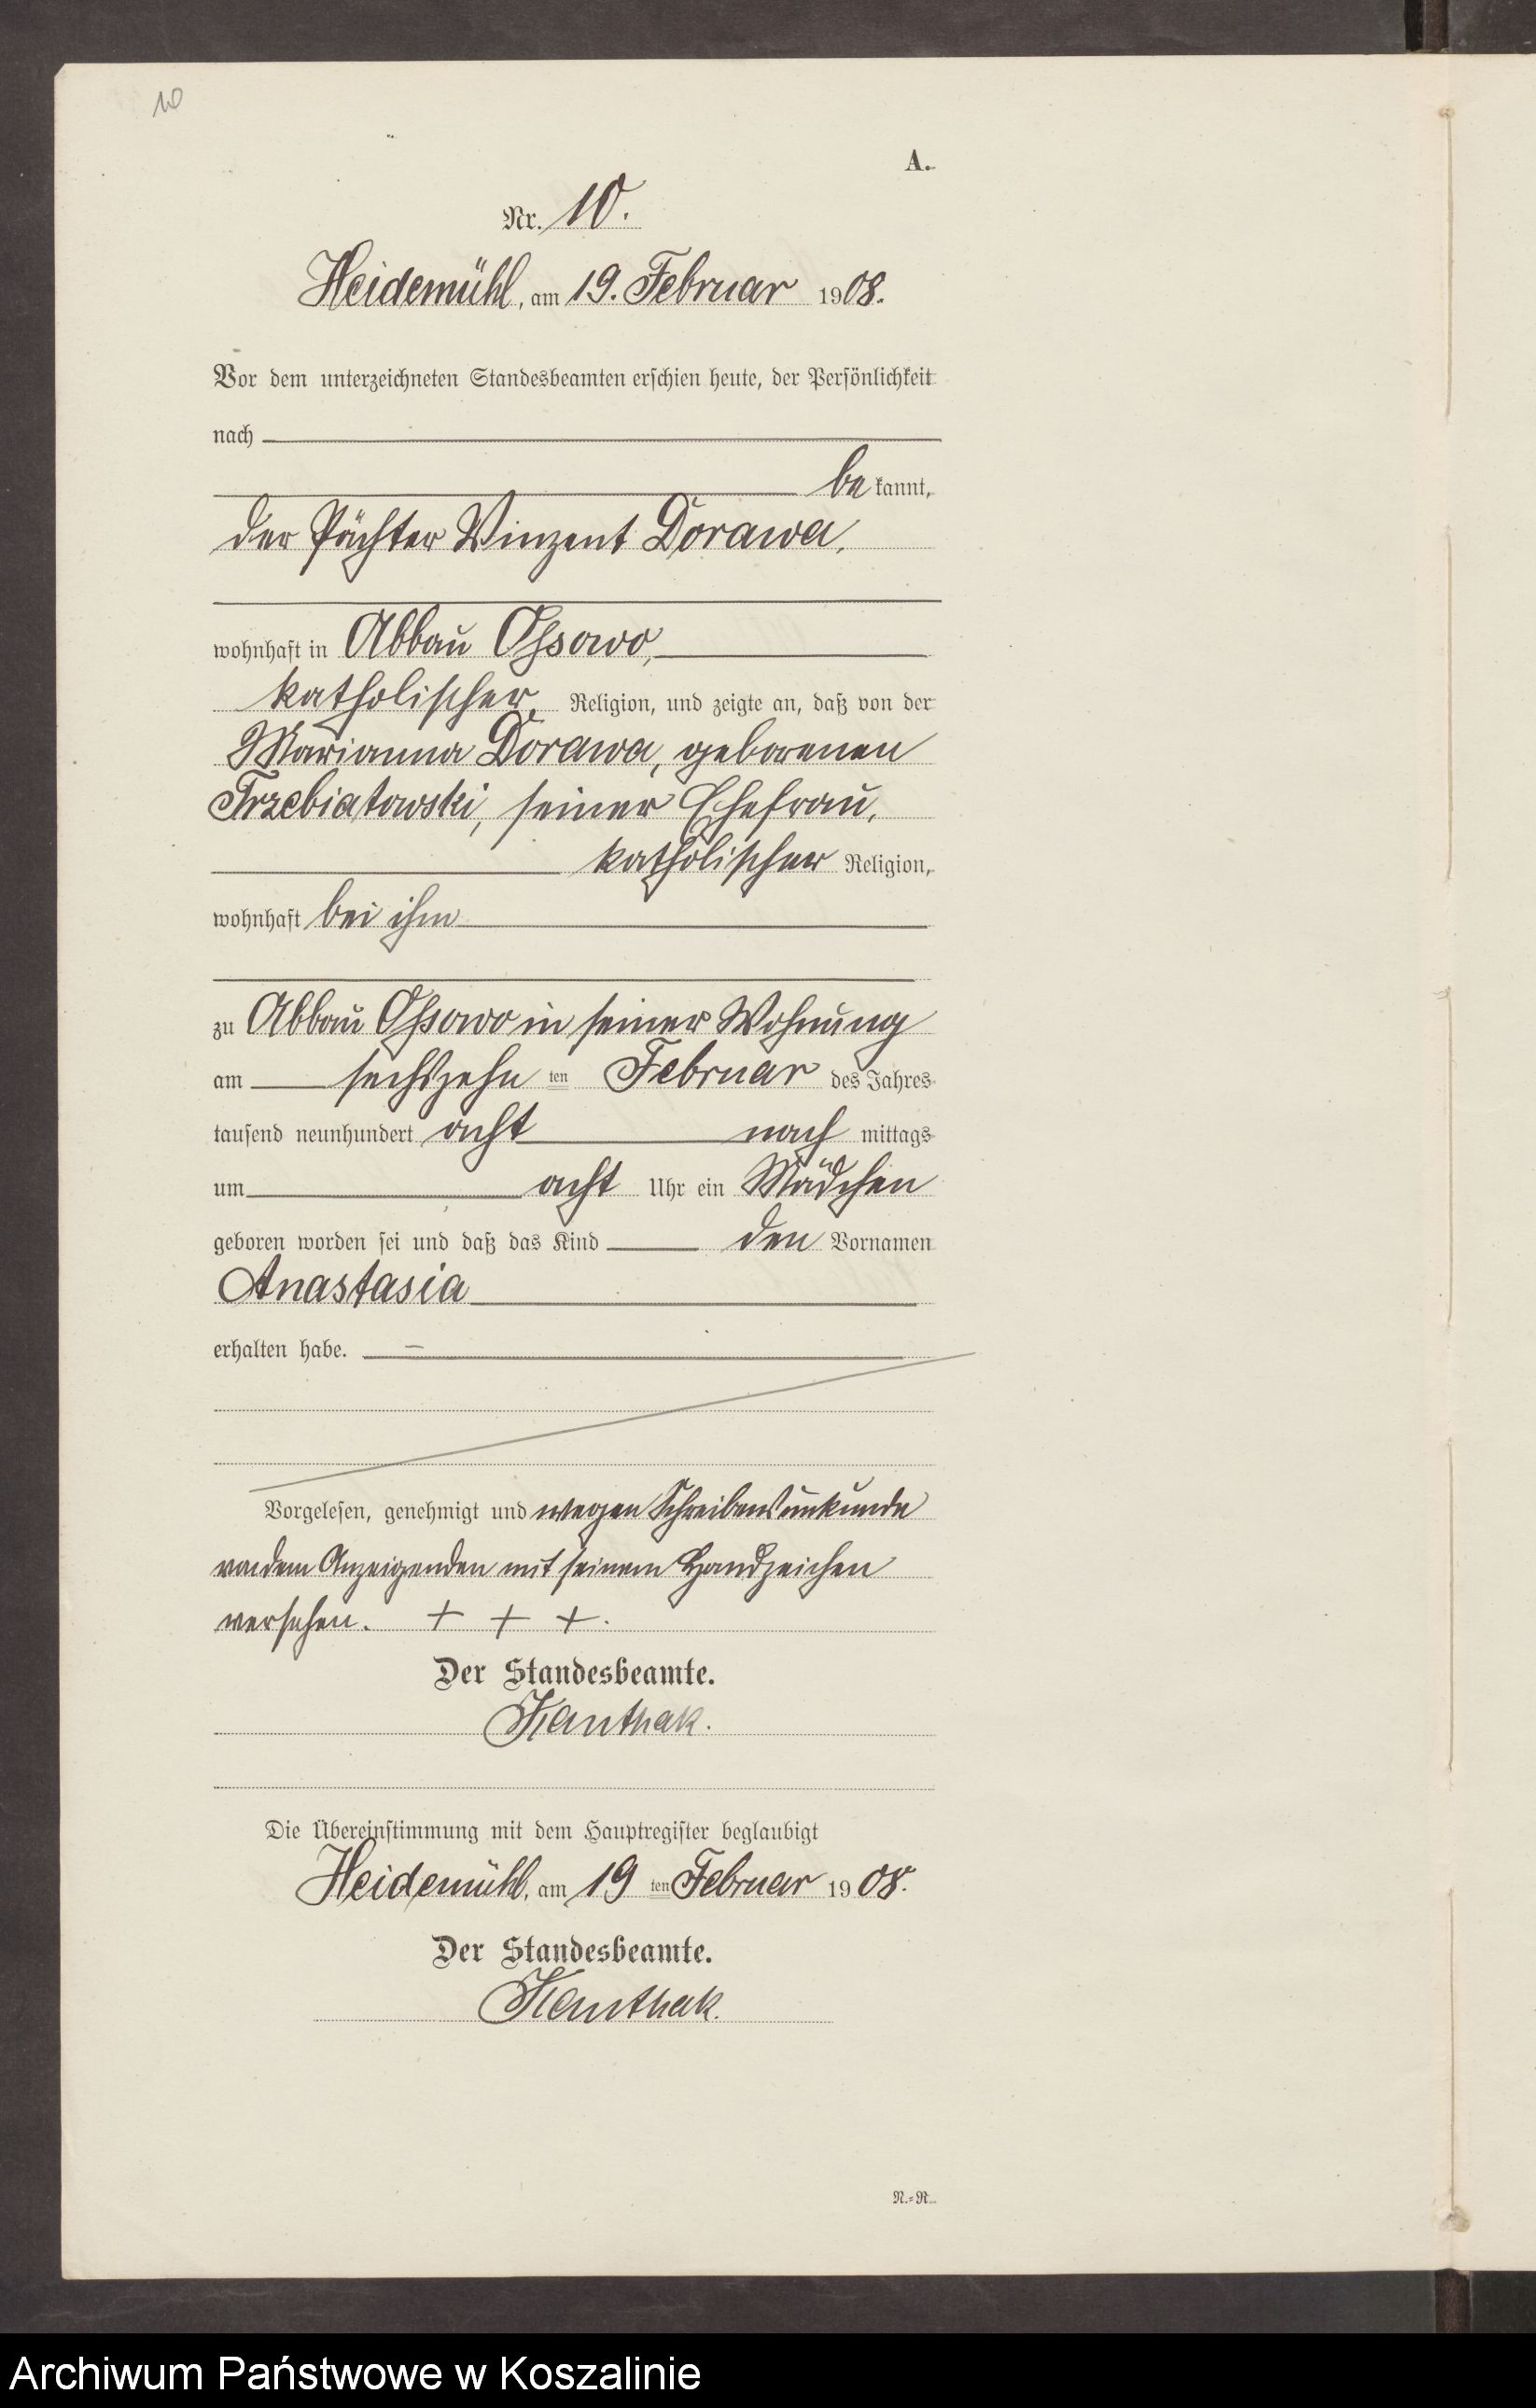 10
A.
Nr. 10.
Heidemühl, am 19. Februar 1908.
Vor dem unterzeichneten Standesbeamten erschien heute, der Persönlichkeit
nach
be kannt,
der Pächter Vinzent Dorawa,
wohnhaft in Abbau Ossowo,
katholischer Religion, und zeigte an, daß von der
Marianna Dorawa, geborenen
Trzebiatowski, seiner Ehefrau,
katholischer Religion,
wohnhaft bei ihm
zu Abbau Ossowo in seiner Wohnung
am sechszehn ten Februar des Jahres
tausend neunhundert acht nach mittags
um acht Uhr ein Mädchen
geboren worden sei und daß das Kind den Vornamen
Anastasia
erhalten habe.
Vorgelesen, genehmigt und wegen Schreibensunkunde
von dem Anzeigenden mit seinem Handzeichen
versehen. + + +.
Der Standesbeamte.
Kanthak.
Die Übereinstimmung mit dem Hauptregister beglaubigt
Heidemühl, am 19 ten Februar 1908.
Der Standesbeamte.
Kanthak.
N.-R.
Archiwum Państwowe w Koszalinie